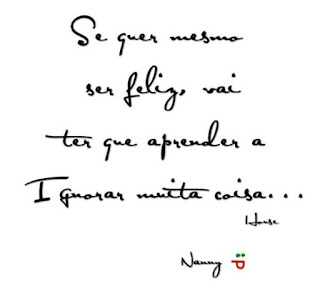 Se quer mesmo
ser feliz, vai
ter que aprender a
Ignorar muita coisa...
House
Nanny :P